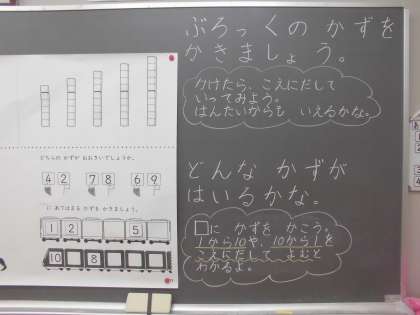 ぶろっくの かずを
かきましょう。
かけたら、こえにだして
いってみよう。
はんたいからも いえるかな。
どちらの かずが おおきいでしょうか。
4 2 7 8 6 9
に あてはまる かずを かきましょう。
1 2 5
10 8
どんな かずが
はいるかな。
□に かずを かこう。
1から10や、10から1を
こえにだして よむと
わかるよ。